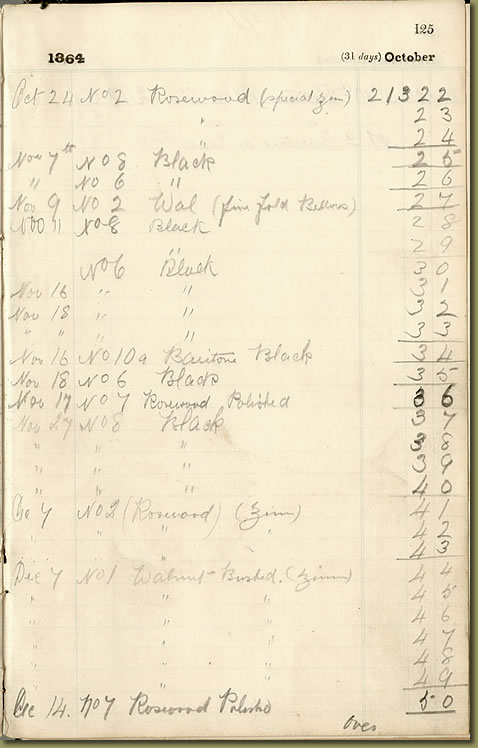 125
1864 (31 days) October
Oct 24 No 2 Rosewood (special ) 21322
" 23
24
Nov 7th No 8 Black 25
" No 6 " 26
Nov 9 No 2 Wal (five fold Bellows) 27
Nov 11 No 8 Black 28
" 29
No 6 Black 30
Nov 16 " " 31
Nov 18 " " 32
" " " 33
Nov 16 No 10a Baritone Black 34
Nov 18 No 6 Black 35
Nov 17 No 7 Rosewood Polished 36
Nov 27 No 8 Black 37
" " " 38
" " " 39
" " " 40
Dec 7 No 2 (Rosewood) 41
" " " 42
43
Dec 7 No 1 Walnut Bushed. 44
" " " 45
" " " 46
" " " 47
" " " 48
" " " 49
Dec 14. No 7 Rosewood Polished 50
Over